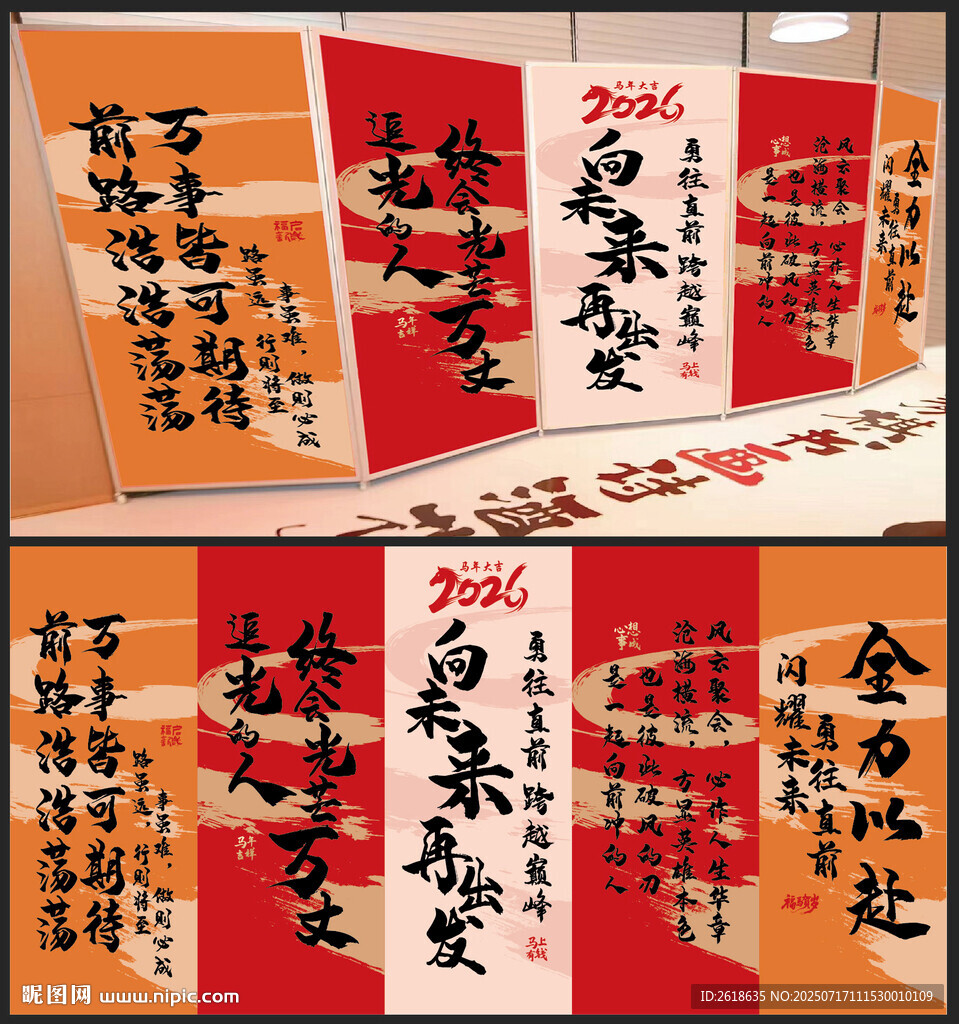 前路浩浩荡荡
万事皆可期待
路虽远，行则将至
事虽难，做则必成
追光的人
终会光芒万丈
马年吉祥
马年大吉
2026
向未来
再出发
勇往直前 跨越巅峰
马上有钱
心想事成
风云聚会，必作人生华章
沧海横流，方显英雄本色
也是彼此破风的刃
是一起向前冲的人
全力以赴
勇往直前
闪耀未来
棋书画诗酒
前路浩浩荡荡
万事皆可期待
路虽远，行则将至
事虽难，做则必成
追光的人
终会光芒万丈
马年吉祥
马年大吉
2026
向未来
再出发
勇往直前 跨越巅峰
马上有钱
心想事成
风云聚会，必作人生华章
沧海横流，方显英雄本色
也是彼此破风的刃
是一起向前冲的人
全力以赴
勇往直前
闪耀未来
福马贺岁
昵图网 www.nipic.com
ID:2618635 NO:20250717111530010109